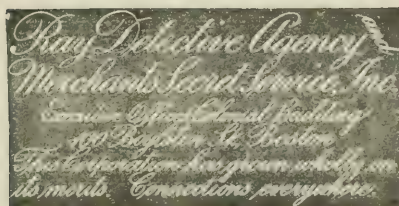 Ray Detective Agency and
Merchants Secret Service, Inc.
Executive Offices Colonial Building
100 Boylston St. Boston
This Corporation has grown wholly on
its merits. Connections everywhere.